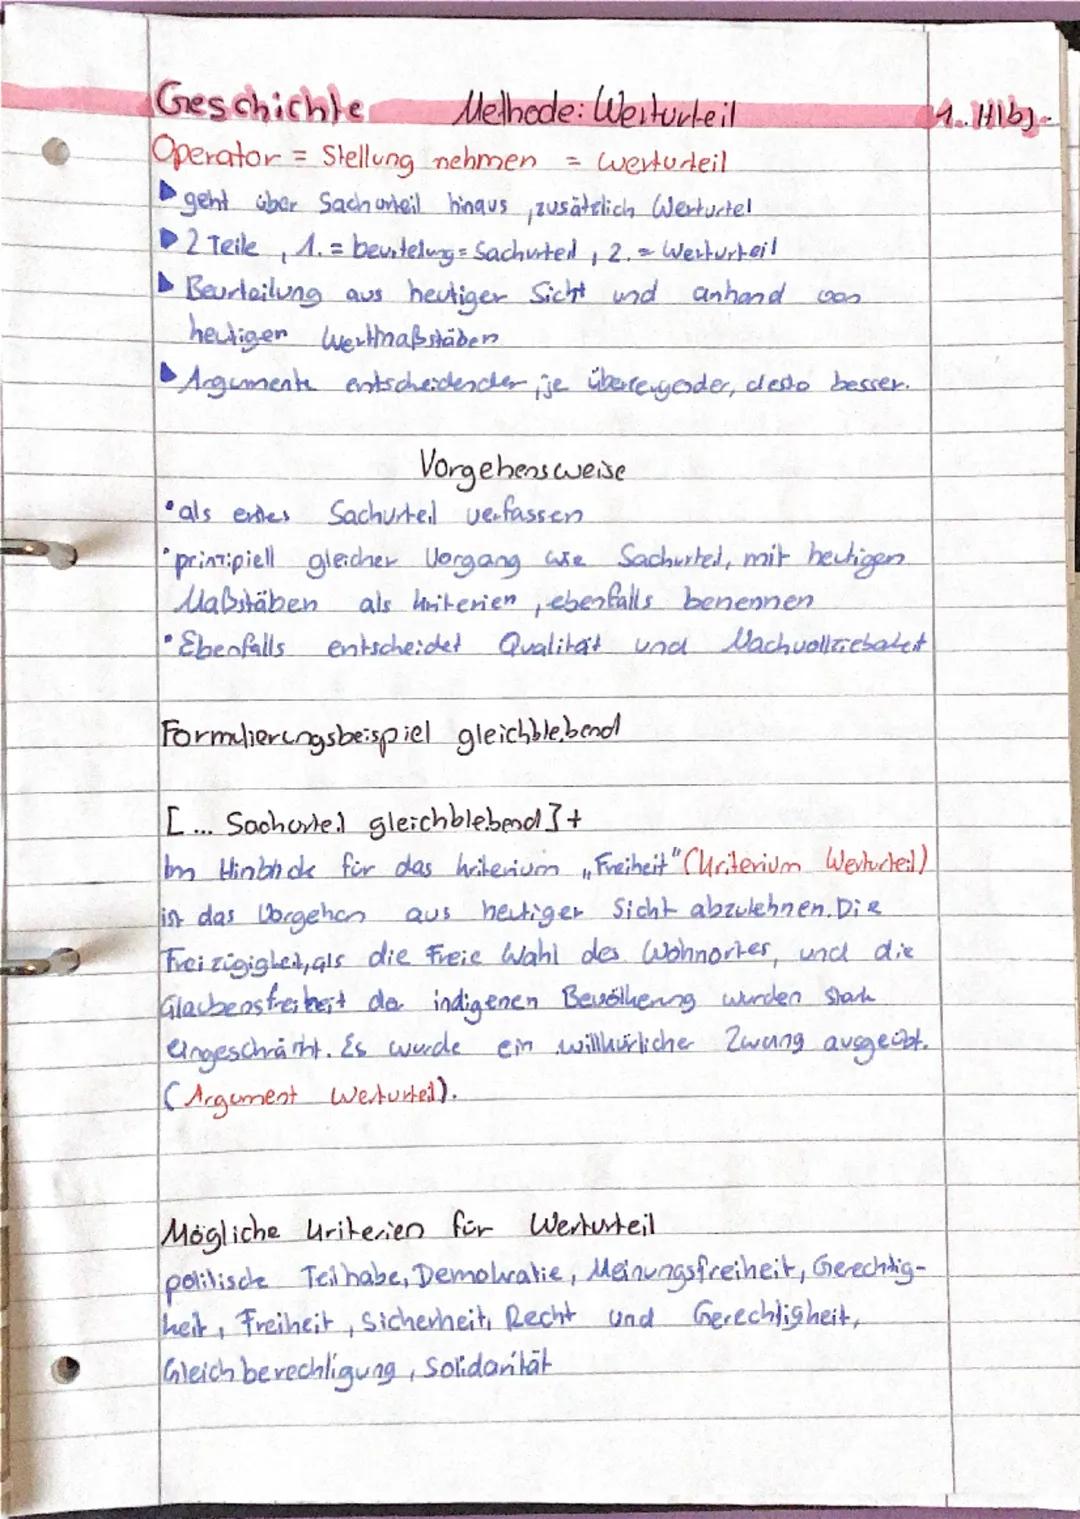 Geschichte Methode: Werturteil 1. Hlbj.
Operator = Stellung nehmen = Werturteil
geht über Sachurteil hinaus, zusätzlich Werturtel
2 Teile, 1. = beurteilung = Sachurteil, 2. = Werturteil
Beurteilung aus heutiger Sicht und anhand von
heutigen Wertmaßstäben
Argumente entscheidender, je überzeugender, desto besser.
Vorgehensweise
• als erstes Sachurteil verfassen
• prinzipiell gleicher Vorgang wie Sachurteil, mit heutigen
Maßstäben als Kriterien, ebenfalls benennen
• Ebenfalls entscheidet Qualität und Nachvollziebarkeit
Formulierungsbeispiel gleichblebend
[... Sachurteil gleichblebend] +
Im Hinblick für das Kriterium „Freiheit" (Kriterium Werturteil)
ist das Vorgehen aus heutiger Sicht abzulehnen. Die
Freizügigkeit, als die Freie Wahl des Wohnortes, und die
Glaubensfreiheit der indigenen Bevölkerung wurden stark
eingeschränkt. Es wurde ein willkürlicher Zwang ausgeübt.
(Argument Werturteil).
Mögliche Kriterien für Werturteil
politische Teilhabe, Demokratie, Meinungsfreiheit, Gerechtig-
keit, Freiheit, Sicherheit, Recht und Gerechtigheit,
Gleichberechtigung, Solidarität